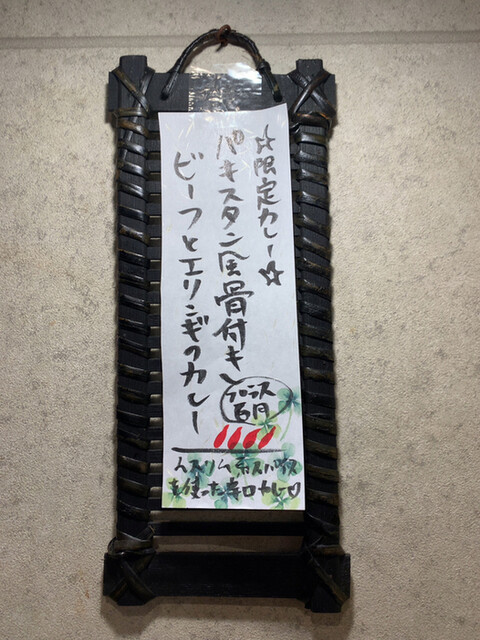 ☆限定カレー☆
パキスタン風骨付き
ビーフとエリンギのカレー
プラス
百円
ムスリム系スパイス
を使った辛口カレー♡